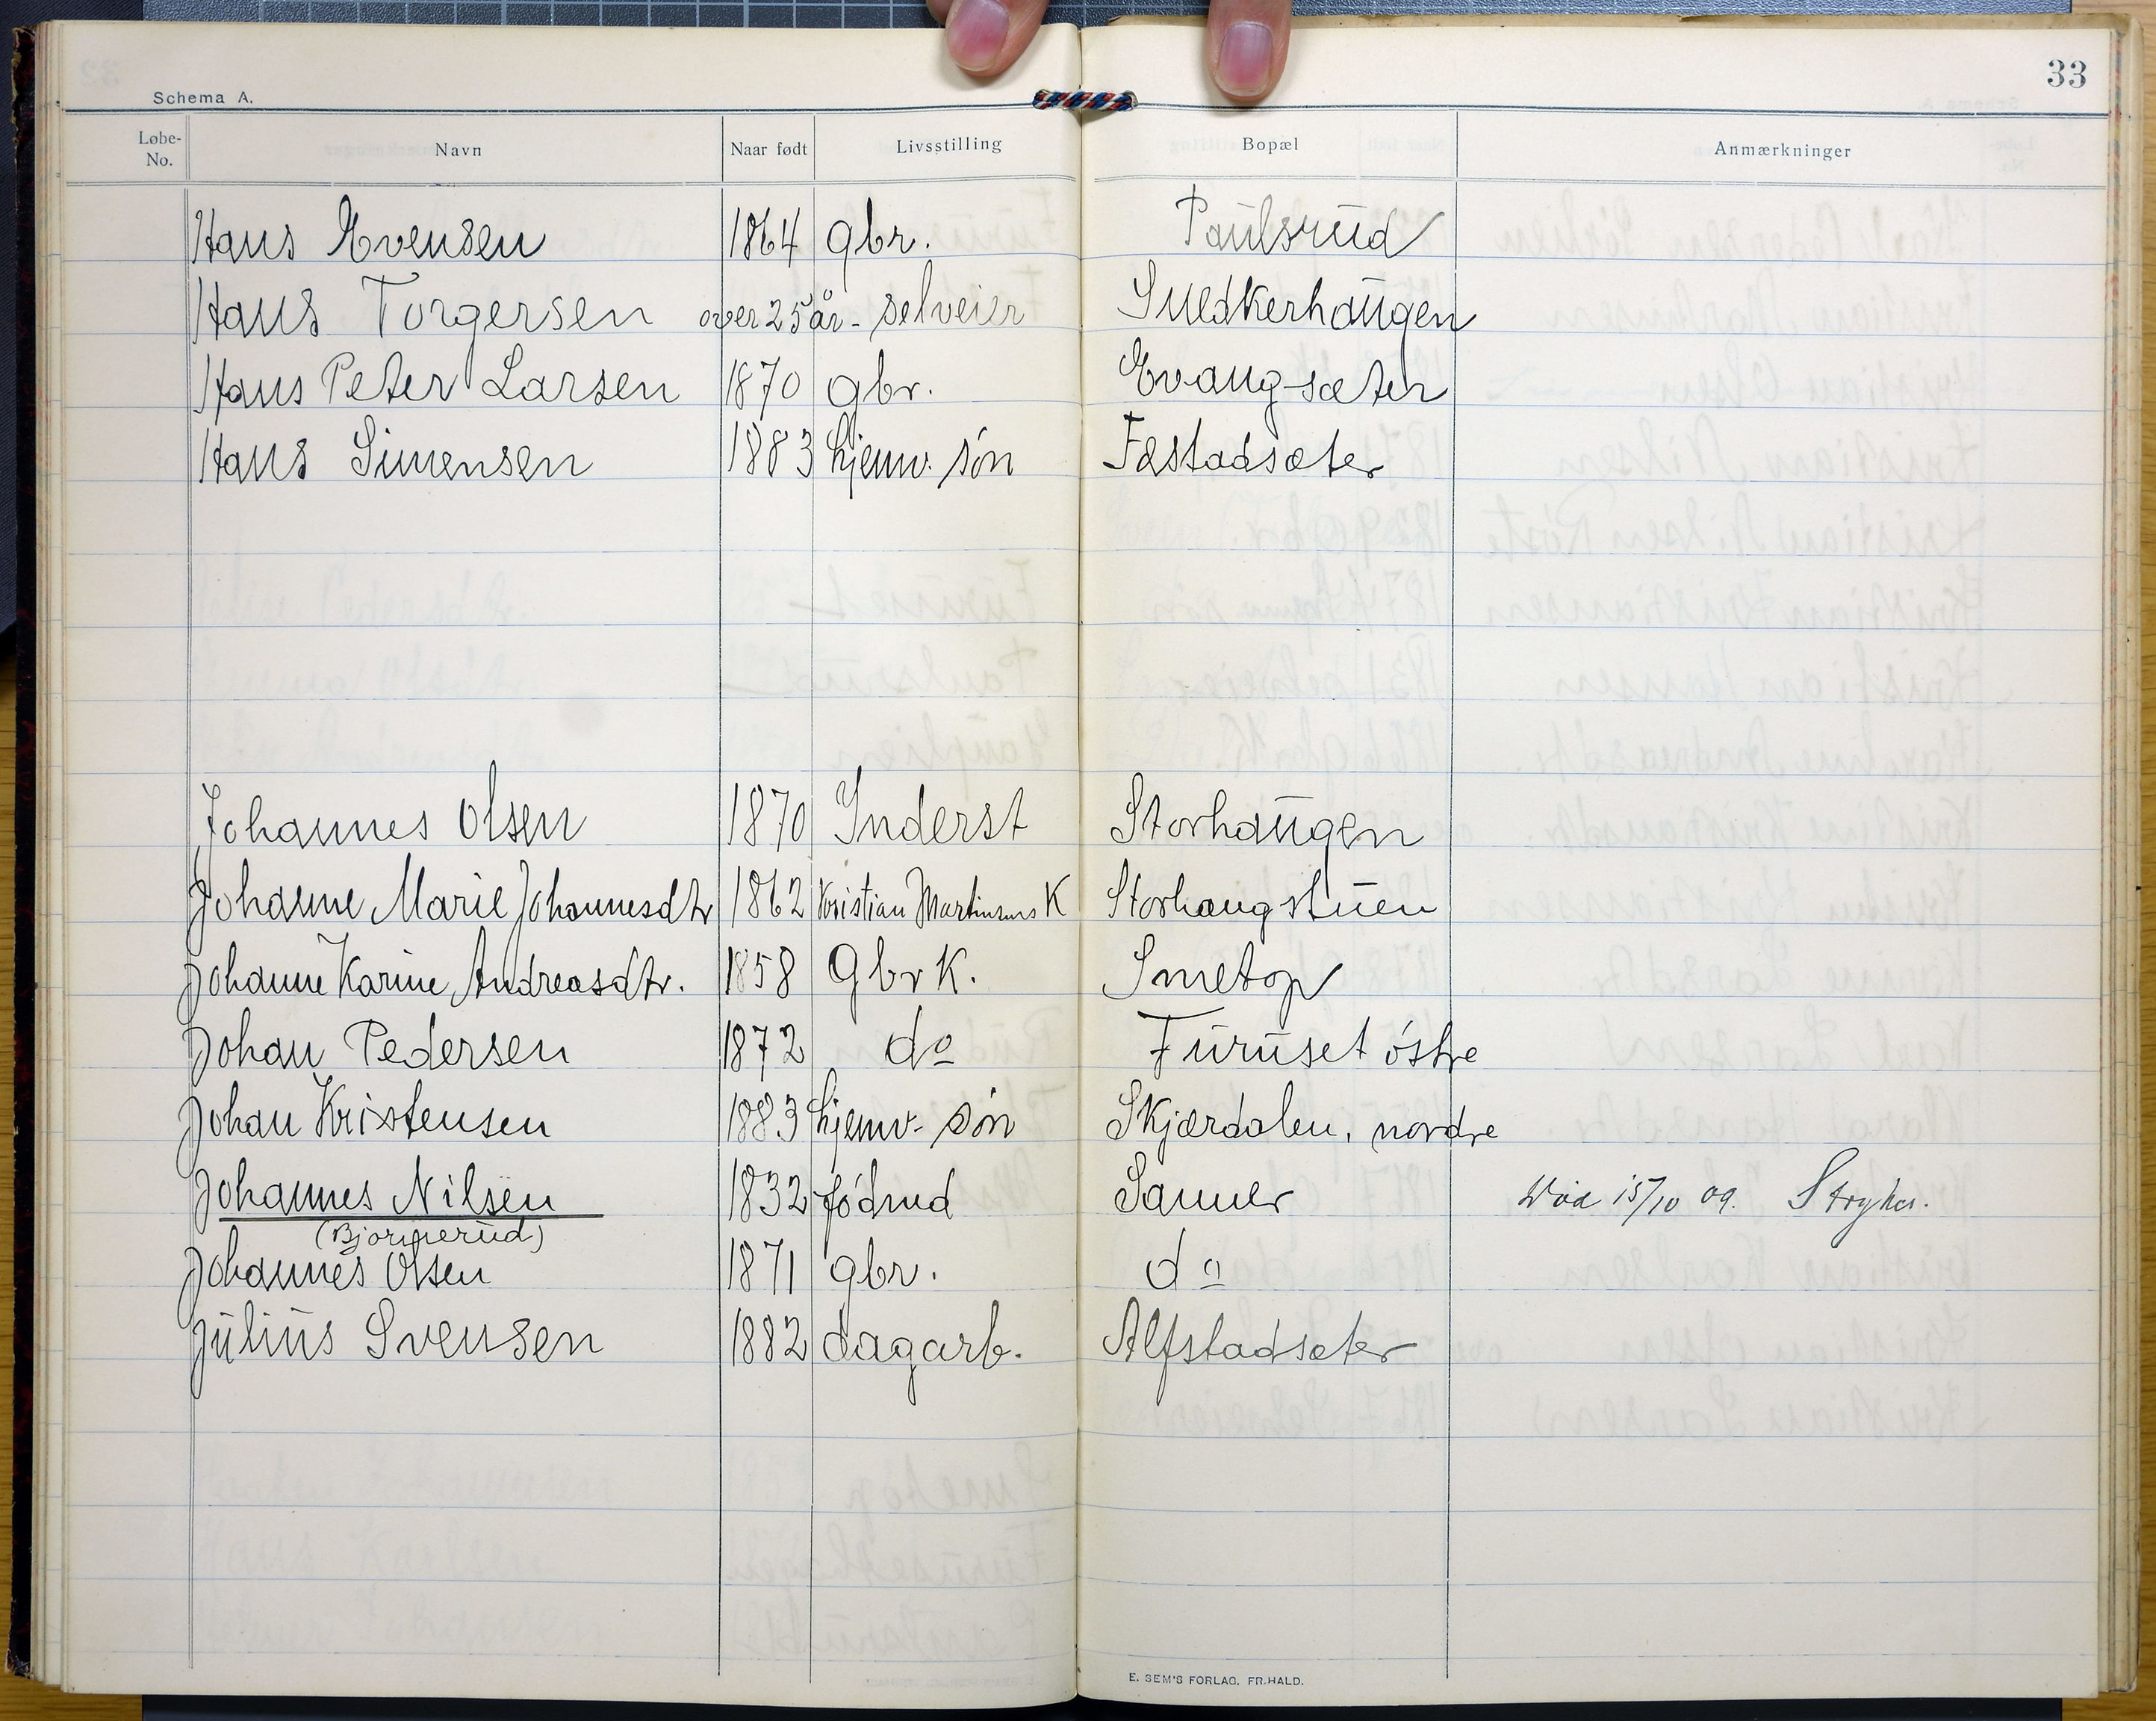 33
Schema A.
Løbe-No. Navn Naar født Livsstilling Bopæl Anmærkninger
Hans Evensen 1864 gbr. Paulsrud
Hans Torgersen over 25 år - selveier Snedkerhaugen
Hans Peter Larsen 1870 gbr. Evangsæter
Hans Simensen 1883 hjemv. søn Fæstadsæter
Johannes Olsen 1870 Inderst Storhaugen
Johanne Marie Johannesdtr 1862 Kristian Martinsens K Storhaugstuen
Johanne Karine Andreasdtr. 1858 Gbr K. Smetop
Johan Pedersen 1872 do Furuset østre
Johan Kristensen 1883 hjemv. søn Skjærdalen, nordre
Johannes Nilsen 1832 føderåd Sanner Død 15/10 09. Strykes.
(Bjørnerud)
Johannes Olsen 1871 gbr. do
Julius Svensen 1882 dagarb. Alfstadsæter
E. SEM'S FORLAG, FR.HALD.